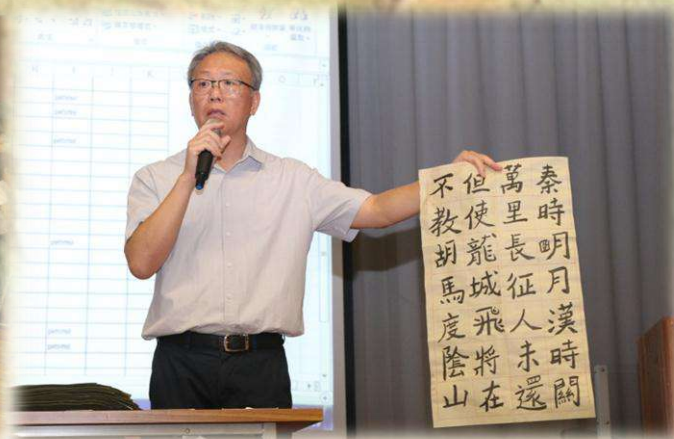 秦時朙月漢時關
萬里長征人未還
但使龍城飛將在
不教胡馬度陰山